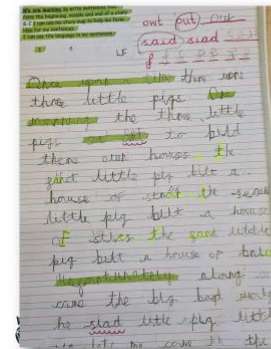 We are learning to write sentences
form the beginning, middle and end of a story.
I can use the story map to help me form
idea for my sentences
I can use the language in my sentences
owt (out) out
said siad
LF
Once upon time there was
three little pigs. One
morning the three little
pigs set out to bild
there own houses. The
first little pig bilt a
house of straw. the second
little pig bilt a house
of sticks. The little
pig bilt a house of
Unfortunately along
came the big bad wolf
he siad little pig littl
let me come in the